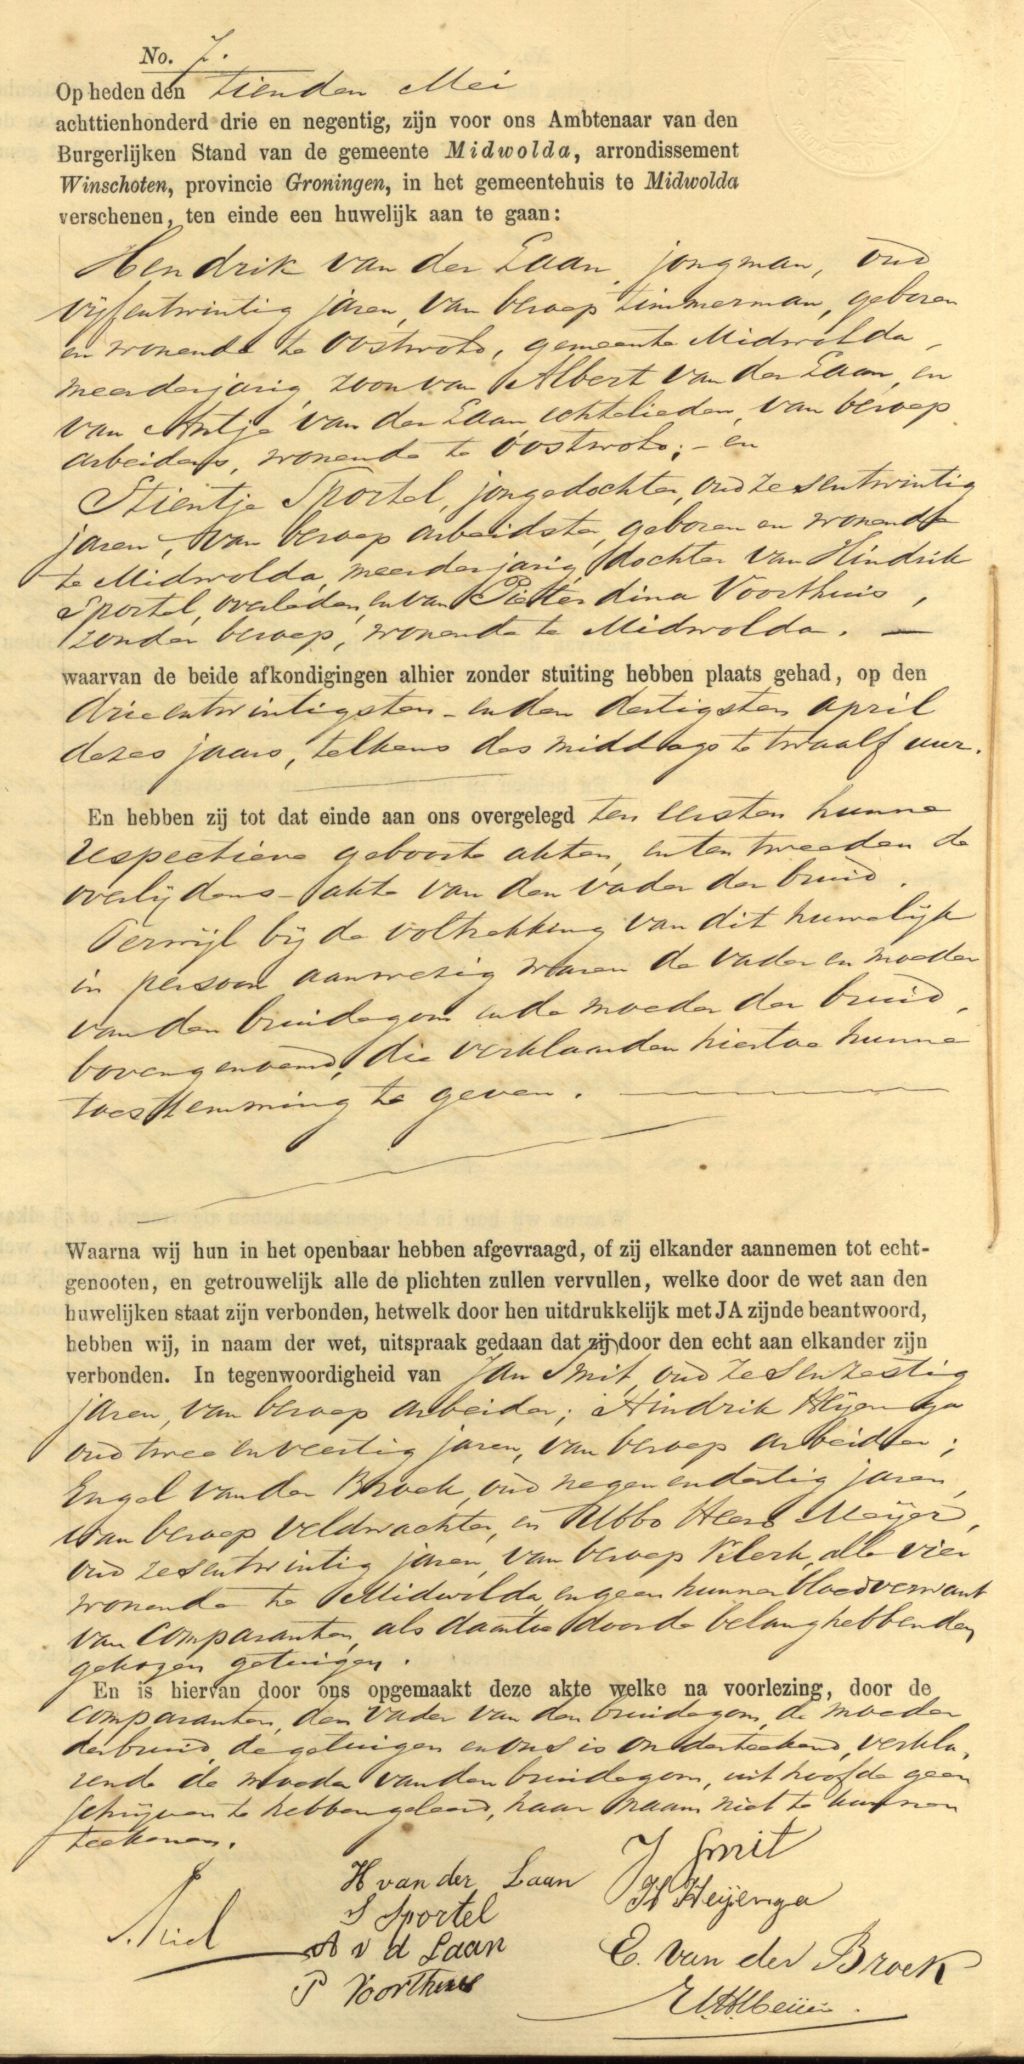 No. 7.
Op heden den tienden Mei
achttienhonderd drie en negentig, zijn voor ons Ambtenaar van den
Burgerlijken Stand van de gemeente Midwolda, arrondissement
Winschoten, provincie Groningen, in het gemeentehuis te Midwolda
verschenen, ten einde een huwelijk aan te gaan:
Hendrik van der Laan, jongman, oud
vijfentwintig jaren, van beroep timmerman, geboren
en wonende te Oostwold, gemeente Midwolda,
meerderjarig, zoon van Albert van der Laan, en
van Antje van der Laan, echtelieden, van beroep
arbeiders, wonende te Oostwold; – en
Stientje Sportel, jongedochter, oud zesentwintig
jaren, van beroep arbeidster, geboren en wonende
te Midwolda, meerderjarig, dochter van Hindrik
Sportel, overleden, en van Pieterdina Voorthuis,
zonder beroep, wonende te Midwolda. —
waarvan de beide afkondigingen alhier zonder stuiting hebben plaats gehad, op den
drieentwintigsten – en den dertigsten april
dezes jaars, telkens des middags te twaalf uur.
En hebben zij tot dat einde aan ons overgelegd ten eersten hunne
respectieve geboorte akten, en ten tweeden de
overlijdens – akte van den vader der bruid.
Terwijl bij de voltrekking van dit huwelijk
in persoon aanwezig waren de vader en moeder
van den bruidegom en de moeder der bruid,
bovengenoemd, die verklaarden hiertoe hunne
toestemming te geven. —
Waarna wij hun in het openbaar hebben afgevraagd, of zij elkander aannemen tot echt-
genooten, en getrouwelijk alle de plichten zullen vervullen, welke door de wet aan den
huwelijken staat zijn verbonden, hetwelk door hen uitdrukkelijk met JA zijnde beantwoord,
hebben wij, in naam der wet, uitspraak gedaan dat zij door den echt aan elkander zijn
verbonden. In tegenwoordigheid van Jan Smit, oud zesenzestig
jaren, van beroep arbeider; Hindrik Heijenga
oud twee en veertig jaren, van beroep arbeider;
Engel van der Broek, oud negenendertig jaren,
van beroep veldwachter, en Ubbo Heero Meijer,
oud zesentwintig jaren, van beroep klerk, alle vier
wonende te Midwolda, en geen hunner bloedverwant
van comparanten, als daartoe door de belanghebbenden
gekozen getuigen.
En is hiervan door ons opgemaakt deze akte welke na voorlezing, door de
comparanten, den vader van den bruidegom, de moeder
der bruid, de getuigen en ons is onderteekend, verkla-
rende de moeder van den bruidegom, uit hoofde geen
schrijven te hebben geleerd, haar naam niet te kunnen
teekenen.
H van der Laan
J Smit
S Sportel
H Heijenga
A v d Laan
E. van der Broek
P Voorthuis